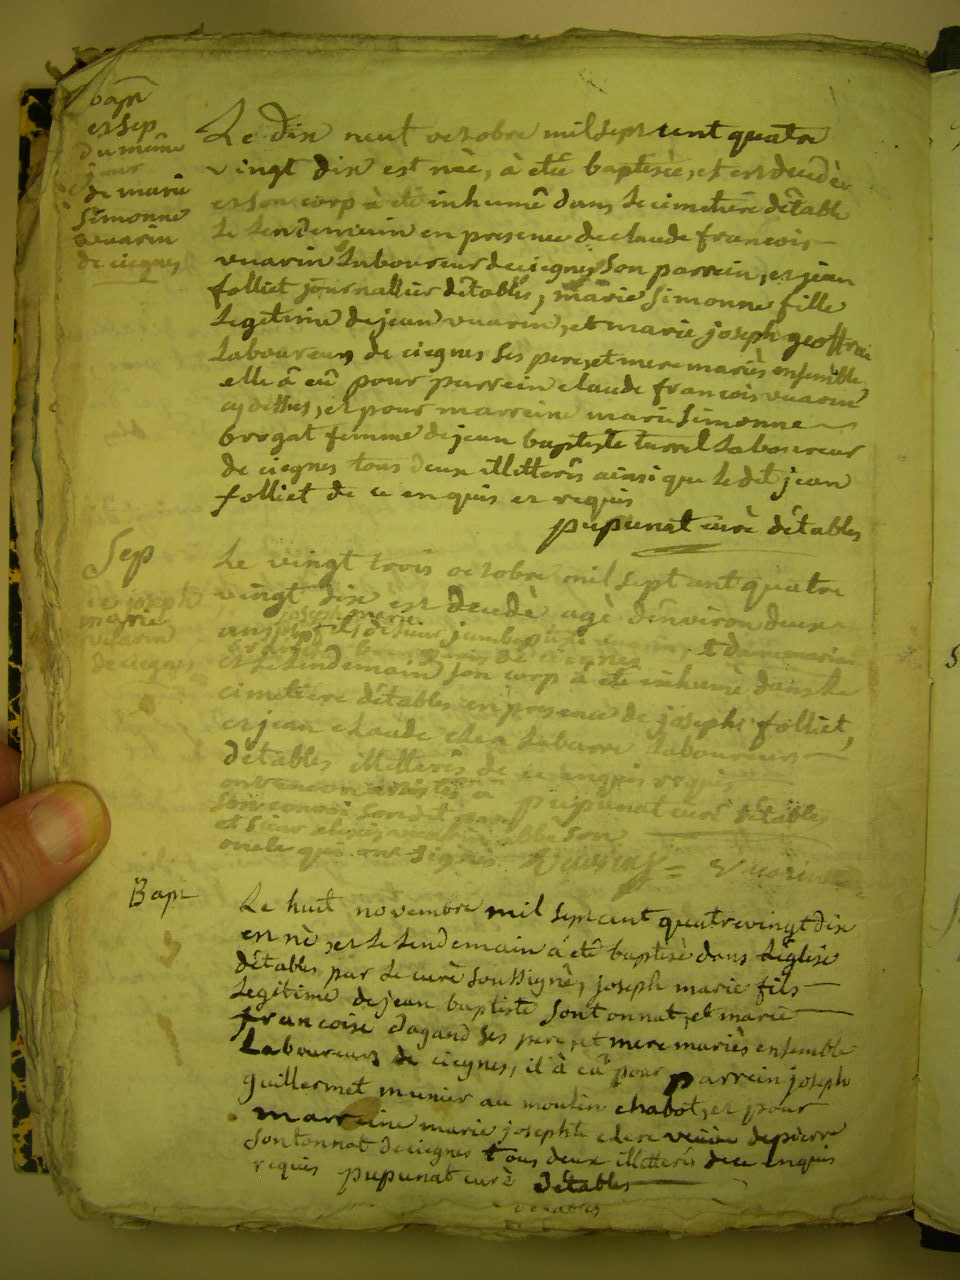 bapt
et sep
du même
jour
de marie
Simonne
vuarin
de ciegnes
Le dix neuf octobre mil sept cent quatre
vingt dix est née, à etê baptisée, et est decedèe
et son corp à etè inhumê dans le cimetière détable
le lendemain en presence de claude francois
vuarin laboureur de ciegnes son parrein, et jean
folliet journallier détables, marie Simonne fille
legitime de jean vuarin, et marie joseph geoffrai
laboureurs de ciegnes ses pere, et mere mariès ensemble
elle â eû pour parrein claude francois vuarin
cy dessus, et pour marreine marie Simonne
brogat femme de jean baptiste turrel laboureur
de ciegnes tous deux illitterês ainsi que le dit jean
folliet de ce enquis et requis
pupunat curè détables
Sep
de joseph
marie
vuarin
de ciegnes
Le vingt trois octobre mil sept cent quatre
vingt dix est decedè agè dénviron deux
ans joseph marie fils de sieur jean baptiste vuarin, et dame marie
de ciegnes
et le lendemain son corp à etè inhumè dans le
cimetière détables en presence de joseph folliet,
et jean claude clea laboureurs
détables illitterès de ce enquis requis
pupunat curè détables
son convoi son dit
et sieur vuarin abbe son
oncle qui ont signés vuarin = vuarin
Bapt
Le huit novembre mil sept cent quatrevingt dix
est nè, et le lendemain à etê baptisè dans léglise
détables par le curè soussignè, joseph marie fils
legitime de jean baptiste sontonnat, et marie
francoise dagand ses pere, et mere mariès ensemble
Laboureurs de ciegnes, il à eû pour parrein joseph
guillermet munier au moulin chabot, et pour
marreine marie josephte clerc veuve de pierre
sontonnat de ciegnes tous deux illitterés de ce enquis
requis pupunat curè détables
détables